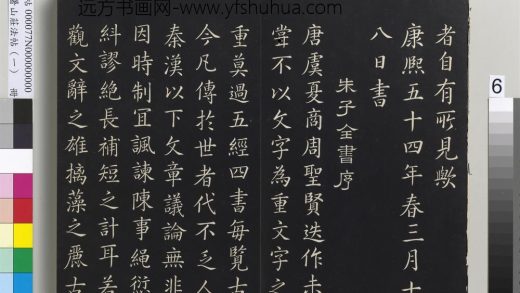 远方书画网-www.yfshuhua.com
者自有所見歟
康熙五十四年春三月十
八日書
朱子全書序
唐虞夏商周聖賢迭作未
甞不以文字為重文字之
重莫過五經四書每覽古
今凡傳於世者代不乏人
秦漢以下文章議論無非
因時制宜諷諫陳事繩愆
糾謬絶長補短之計耳若
觀文辭之雄摛藻之麗古
帖 000077N000000000
山莊法帖(一) 冊
6